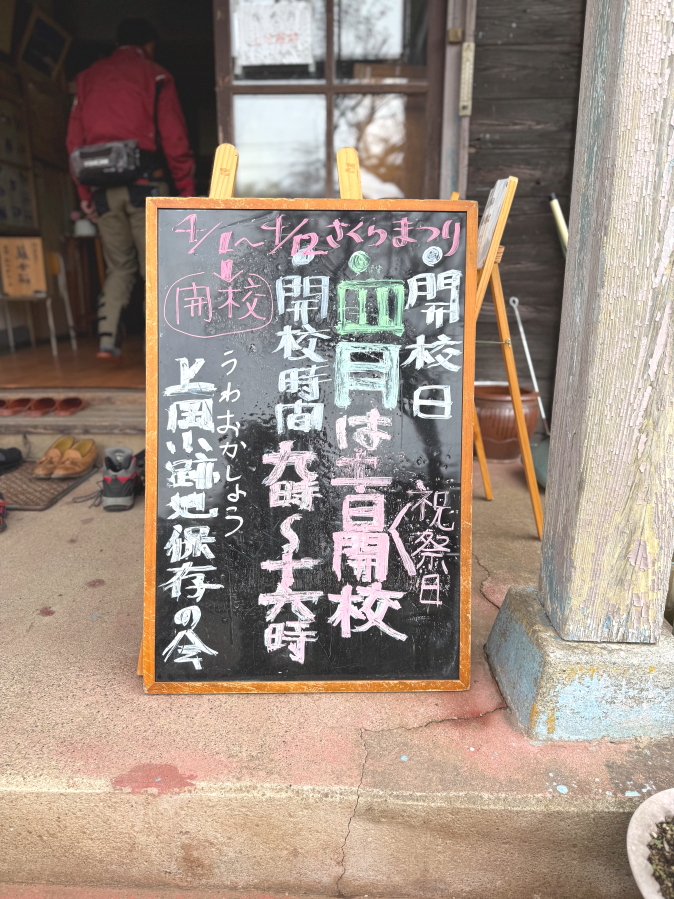 4/1〜4/12さくらまつり
開校
開校日
四月は土日開校
祝祭日
開校時間
九時〜十六時
うわおかしょう
上岡小跡地保存の会